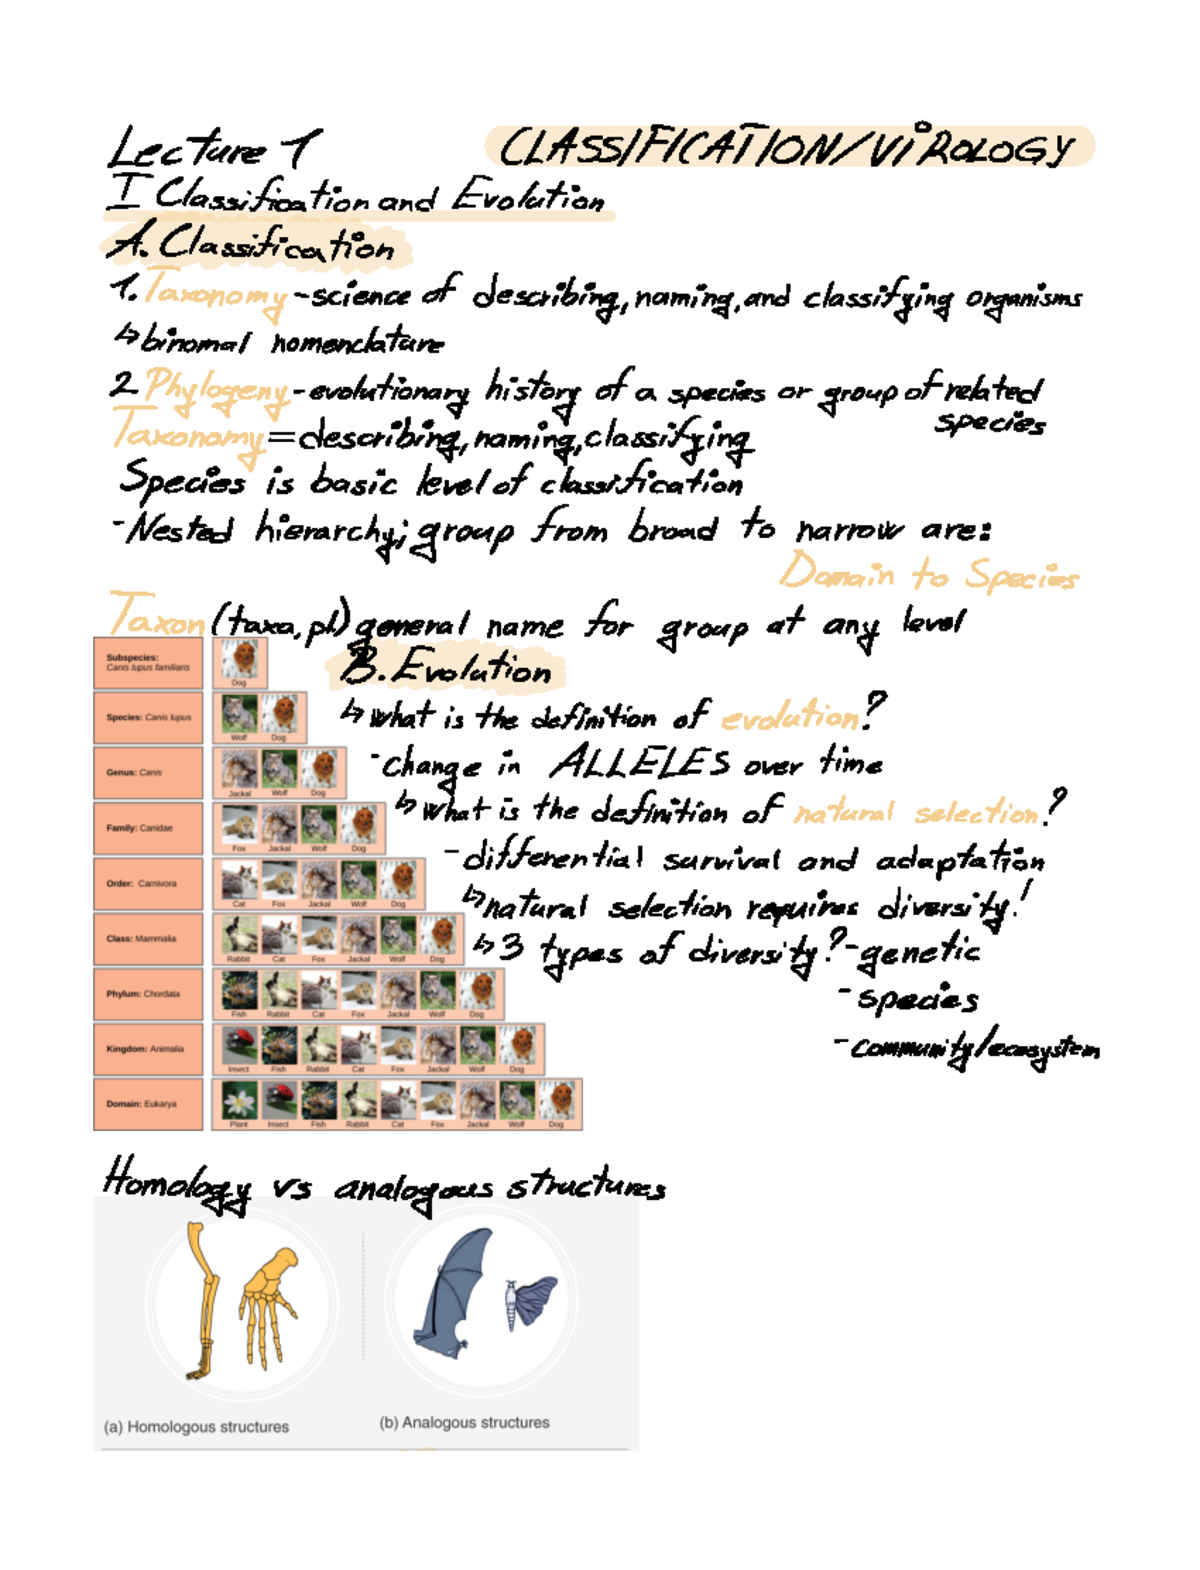 Lecture 1 CLASSIFICATION/VIROLOGY
I Classification and Evolution
A. Classification
1. Taxonomy - science of describing, naming, and classifying organisms
↳ binomal nomenclature
2 Phylogeny - evolutionary history of a species or group of related
species
Taxonomy = describing, naming, classifying
Species is basic level of classification
- Nested hierarchy; group from broad to narrow are:
Domain to Species
Taxon (taxa, pl) general name for group at any level
B. Evolution
↳ what is the definition of evolution?
- change in ALLELES over time
↳ what is the definition of natural selection?
- differential survival and adaptation
↳ natural selection requires diversity!
↳ 3 types of diversity? - genetic
- species
- community/ecosystem
Subspecies:
Canis lupus familiaris
Dog
Species: Canis lupus
Wolf Dog
Genus: Canis
Jackal Wolf Dog
Family: Canidae
Fox Jackal Wolf Dog
Order: Carnivora
Cat Fox Jackal Wolf Dog
Class: Mammalia
Rabbit Cat Fox Jackal Wolf Dog
Phylum: Chordata
Fish Rabbit Cat Fox Jackal Wolf Dog
Kingdom: Animalia
Insect Fish Rabbit Cat Fox Jackal Wolf Dog
Domain: Eukarya
Plant Insect Fish Rabbit Cat Fox Jackal Wolf Dog
Homology vs analogous structures
(a) Homologous structures (b) Analogous structures